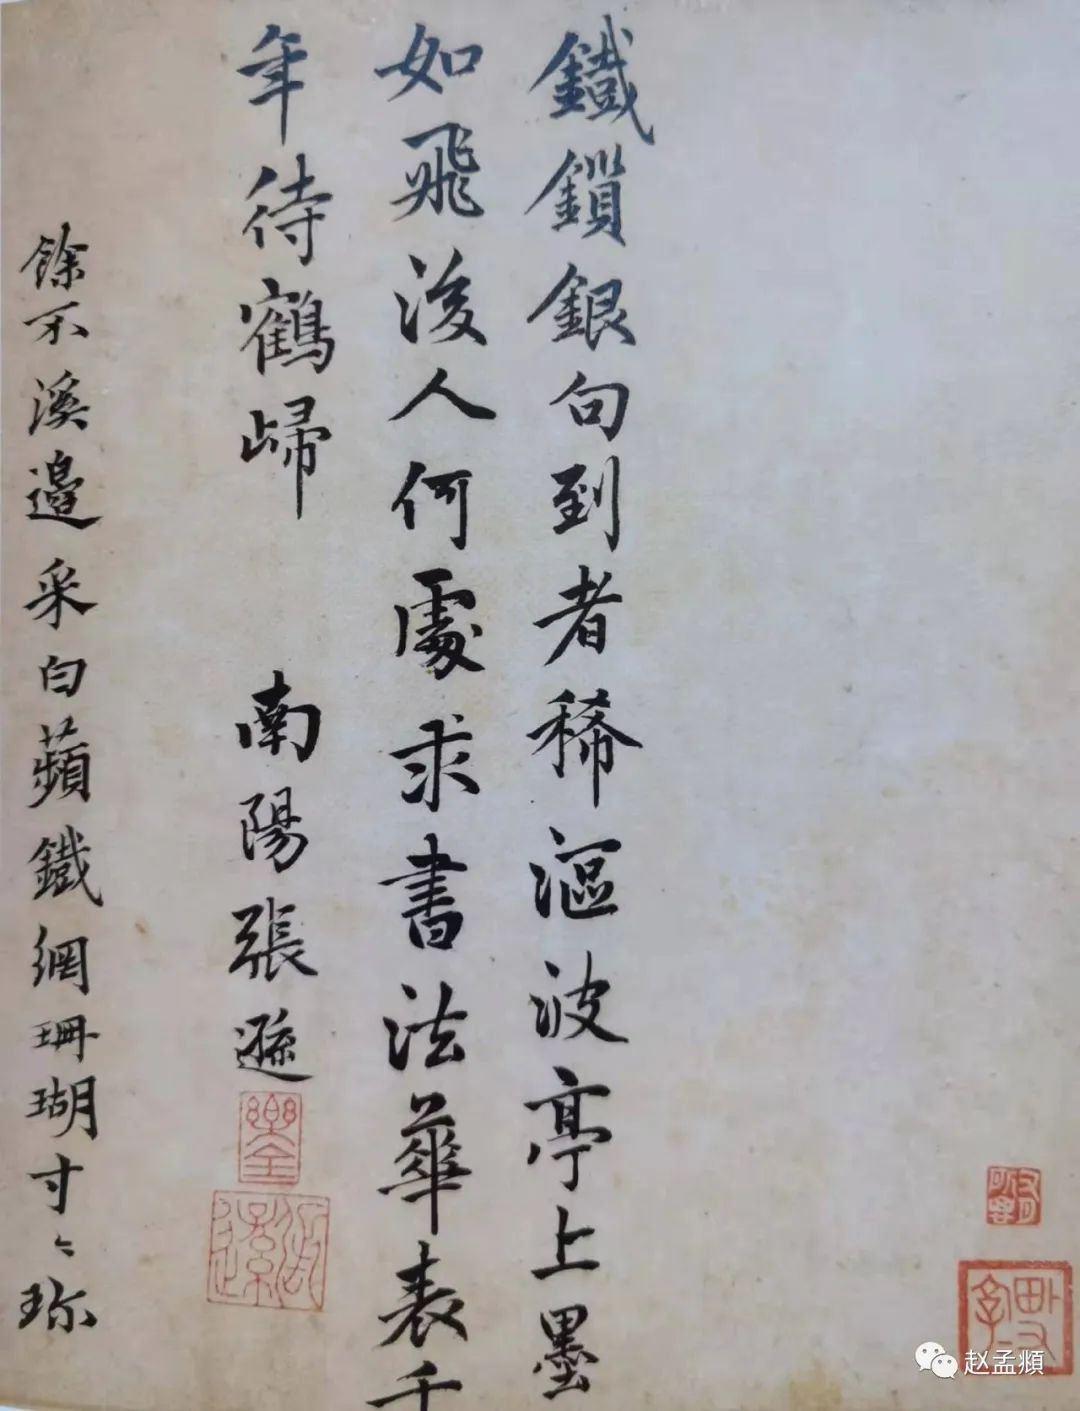 鐵鎖銀句到者稀漚波亭上墨
如飛後人何處求書法華表千
年待鶴歸　南陽張遜
餘不溪邊采白蘋鐵網珊瑚寸〻珎
赵孟頫